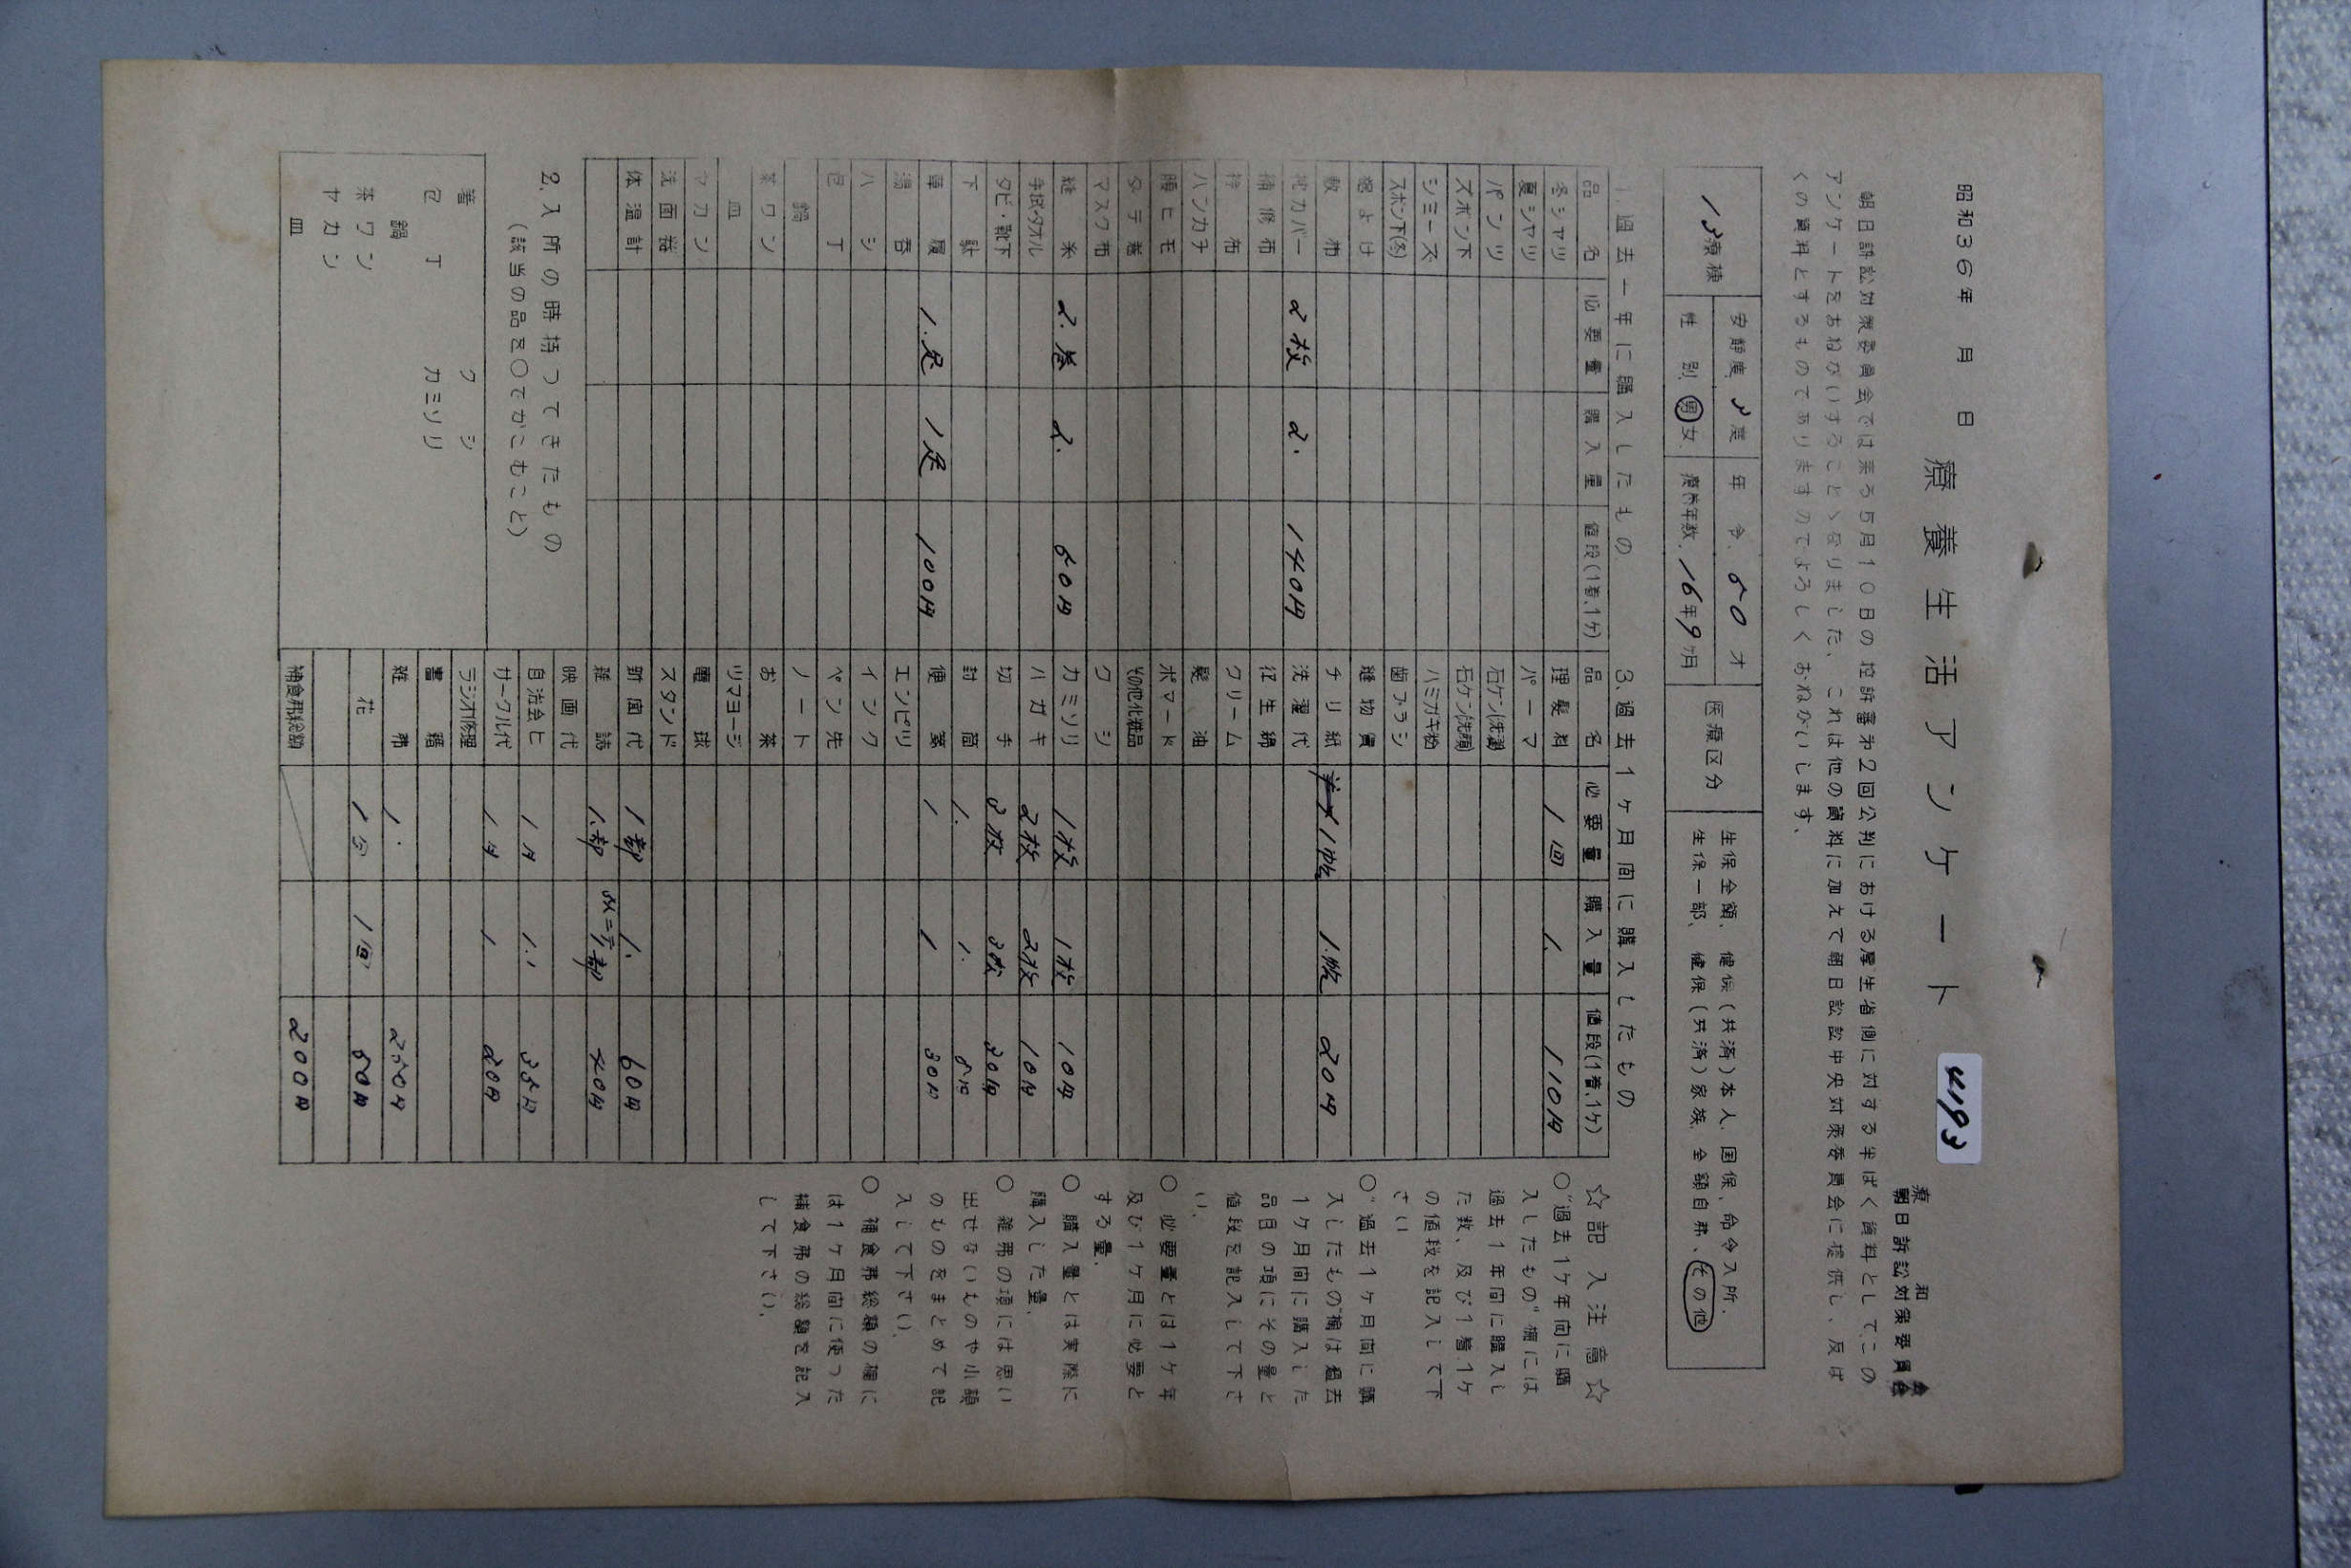 昭和36年　月　日
療養生活アンケート
4193
療　和　会
朝日訴訟対策委員会
朝日訴訟対策委員会では来る5月10日の控訴審第2回公判における厚生省側に対する半ばく資料としてこの
アンケートをおねがいすることゝなりました、これは他の資料に加えて朝日訟訴中央対策委員会に提供し、反ば
くの資料とするものでありますのでよろしくおねがいします、
13療棟
安静度 3度
年令、50才
性別 男 女
療養年数、16年9ヶ月
医療区分
生保全額、健保（共済）本人、国保、命令入所、
生保一部、健保（共済）家族、全額自弗、その他
1.過去一年に購入したもの
品名 必要量 購入量 値段(1着、1ケ)
冬シャツ
夏シャツ
パンツ
ズボン下
シミーズ
ズボン下(冬)
敷布
枕カバー 2枚 2. 140円
補修布
ハンカチ
腰ヒモ
マスク布
2.巻 2. 60円
手拭・タオル
タビ・靴下
下駄
草履 1.足 1足 100円
湯呑
ハシ
包丁
鍋
茶ワン
皿
ヤカン
洗面器
体温計
2.入所の時持つてきたもの
（該当の品を○でかこむこと）
クシ
包丁 カミソリ
鍋
茶ワン
ヤカン
皿
3.過去1ヶ月間に購入したもの
品名 必要量 購入量 値段(1着、1ケ)
理髪料 1回 1. 110円
パーマ
石ケン(洗濯)
石ケン(洗顔)
ハミガキ粉
歯ブラシ
縫物賃
洗濯代
チリ紙 1帖 1.帖 20円
衛生綿
クリーム
髪油
ポマード
その他化粧品
クシ
カミソリ 1枚 1枚 10円
ハガキ 2枚 2枚 10円
切手 3枚 3枚 30円
封筒 1. 1. 5円
便箋 1 1 30円
エンピツ
インク
ペン先
ノート
お茶
ツマヨージ
電球
スタンド
新聞代 1部 1. 60円
雑誌 1.部 40円
映画代
自治会ヒ 1月 1. 35円
サークル代 1月 1 20円
ラジオ修理
書籍
雑弗 1. 250円
花 1回 50円
補食弗総額 200円
☆記入注意☆
○“過去1ヶ年間に購
入したもの”欄には
過去1年間に購入し
た数、及び1着、1ケ
の値段を記入して下
さい
○“過去1ヶ月間に購
入したもの”欄は過去
1ヶ月間に購入した
品目の項にその量と
値段を記入して下さ
い、
○ 必要量とは1ヶ年
及び1ヶ月に必要と
する量、
○ 購入量とは実際に
購入した量、
○ 雑弗の項には思い
出せないものや小額
のものをまとめて記
入して下さい、
○ 補食弗総額の欄に
は1ヶ月間に使つた
補食弗の総額を記入
して下さい、